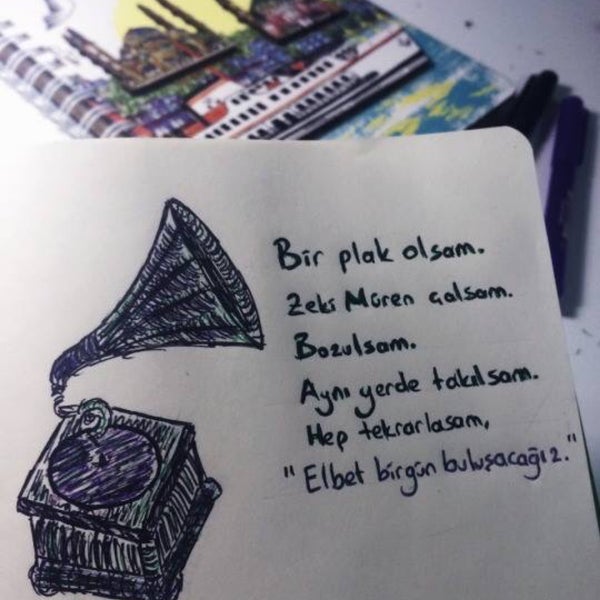 Bir plak olsam.
Zeki Müren çalsam.
Bozulsam.
Aynı yerde takılsam.
Hep tekrarlasam,
"Elbet birgün buluşacağız."